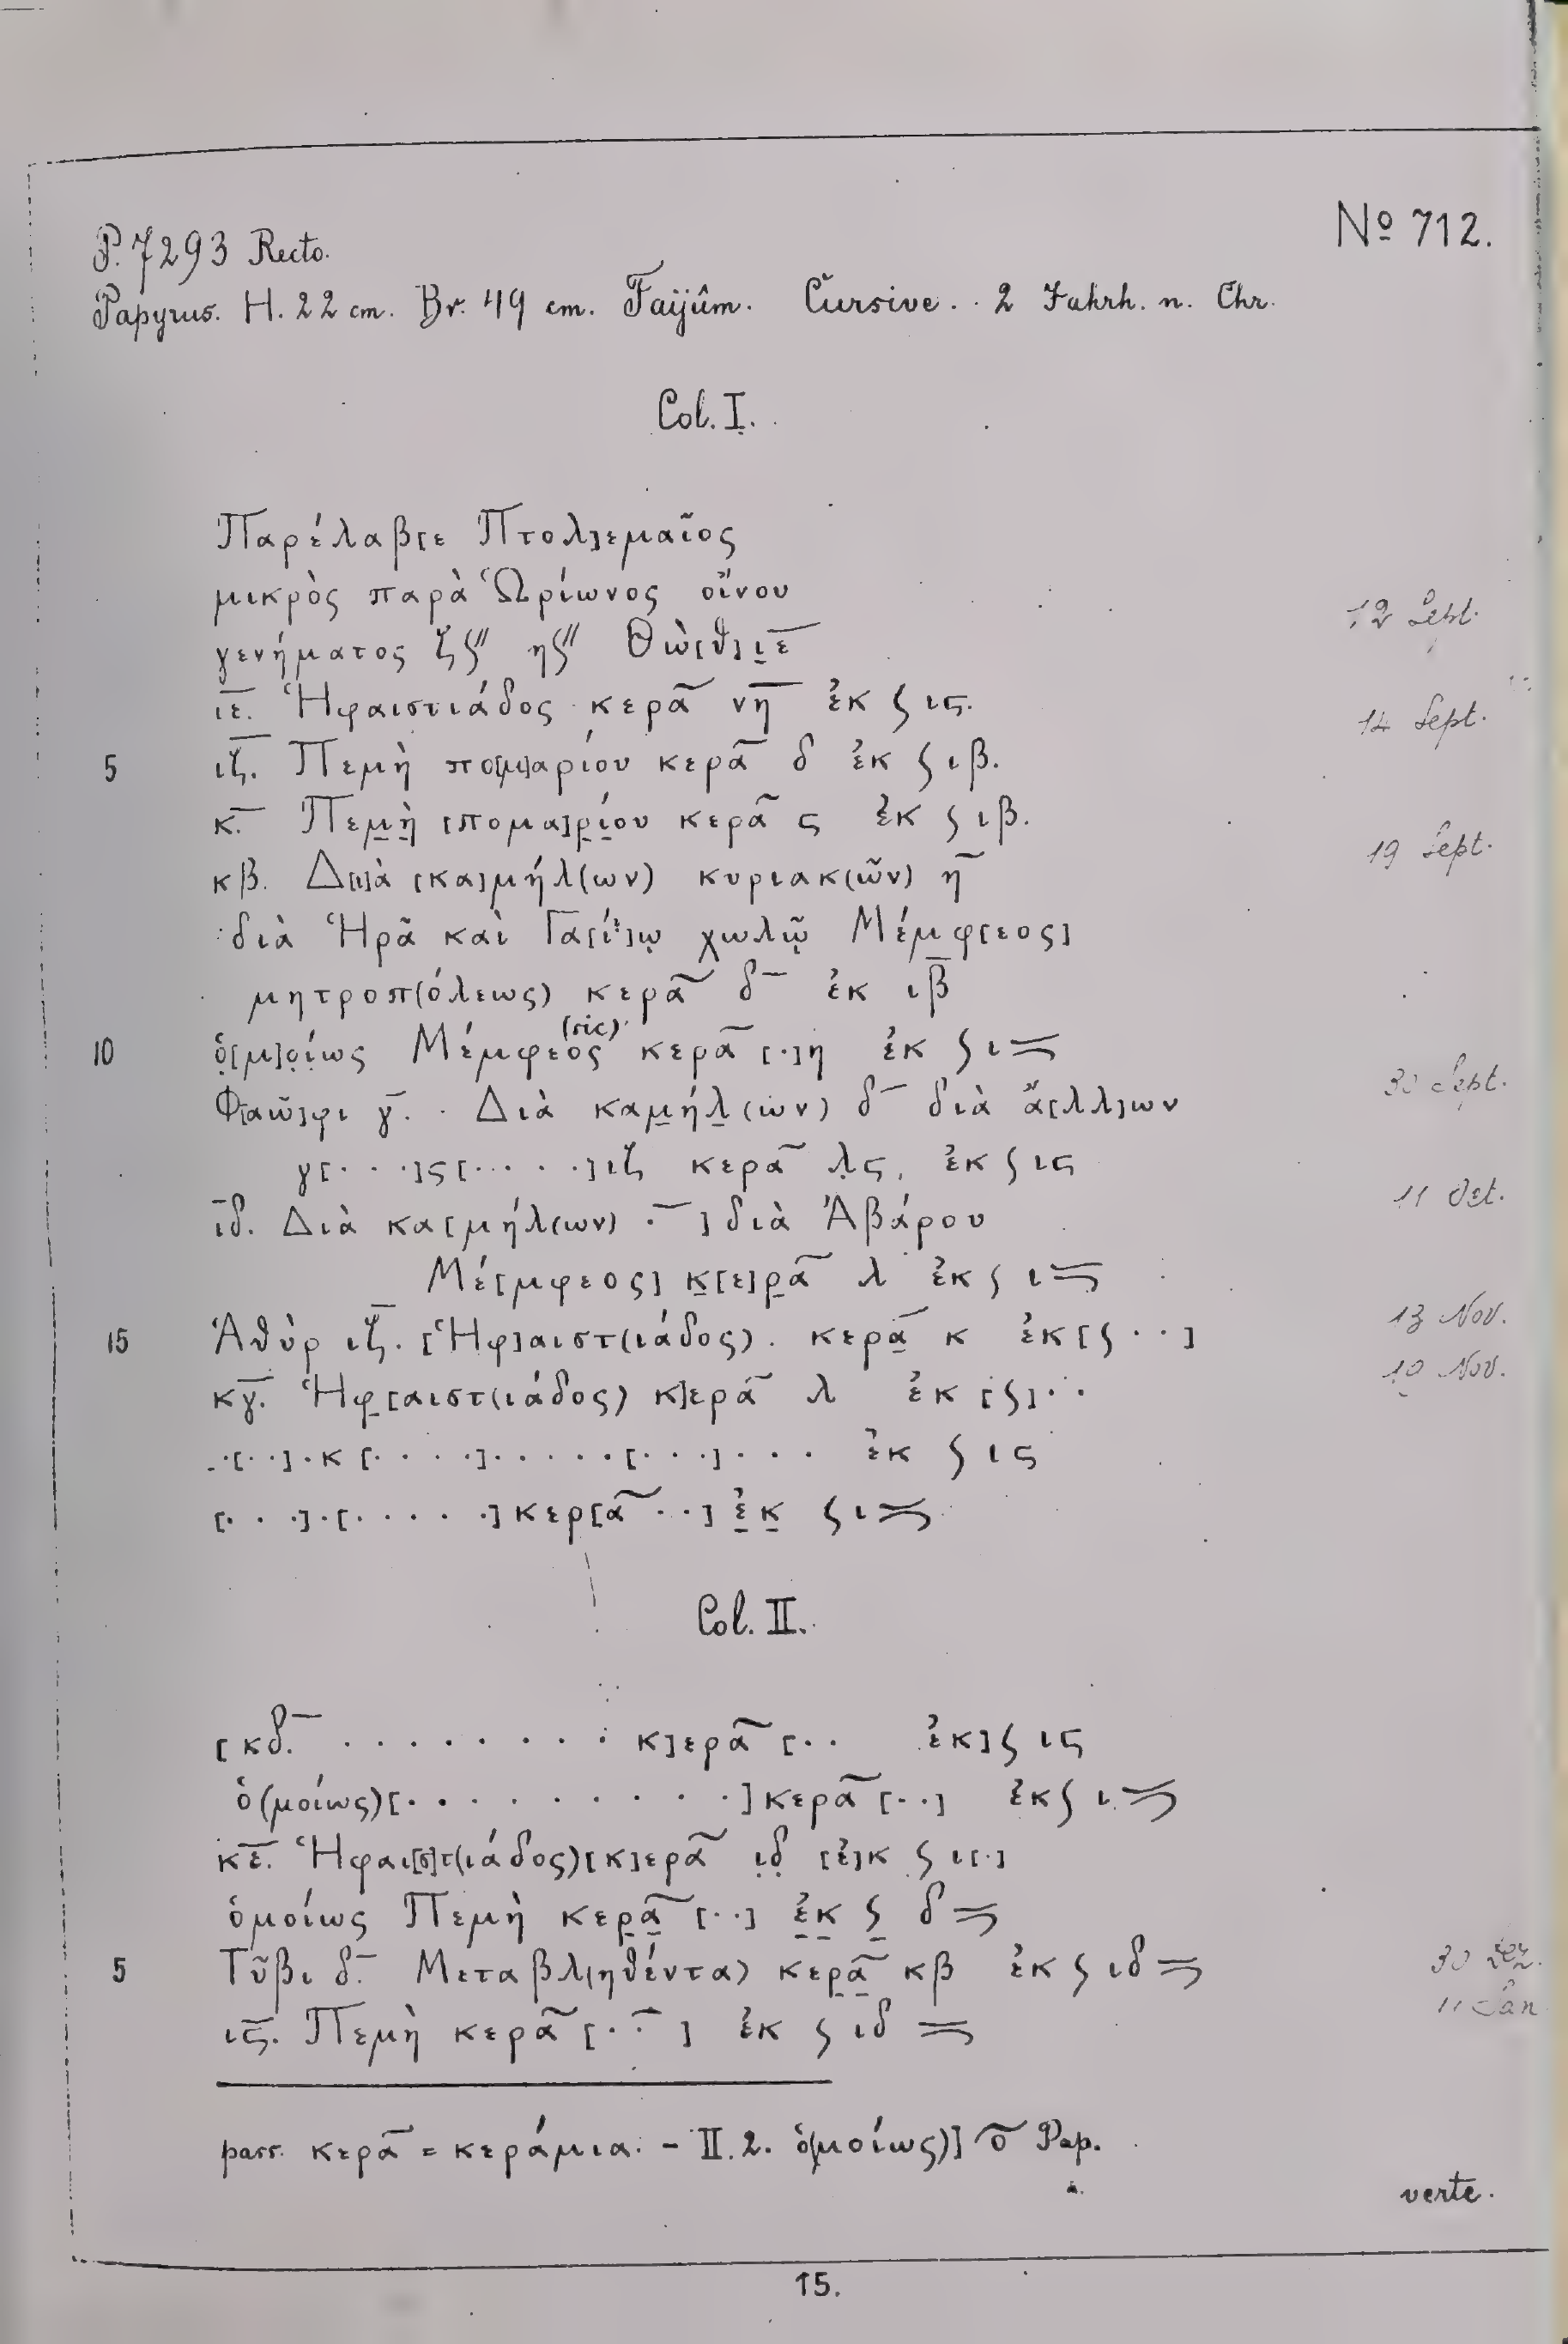 P. 7293 Recto. Nº 712.
Papyrus. H. 22 cm. Br. 49 cm. Faijûm. Cursive. 2 Jahrh. n. Chr.
Col. I.
Παρέλαβ[ε Πτολ]εμαῖος
μικρὸς παρὰ Ὡρίωνος οἴνου
γενήματος ζϛ″ ηϛ″ Θὼ[θ] ι̣ε̅ 12 Sept.
ιε̅. Ἡφαιστιάδος κερᾶ νη̅ ἐκ ϛ ις.
5 ιζ̅. Πεμὴ πο[μ]αρίου κερᾶ δ ἐκ ϛ ιβ. 14 Sept.
κ̅. Πεμ̣ὴ̣ [πομα]ρ̣ί̣ου κερᾶ ς ἐκ ϛ ιβ.
κβ. Δ[ι]ὰ [κα]μήλ(ων) κυριακ(ῶν) η̅ 19 Sept.
διὰ Ἡρᾶ καὶ Γα[ΐ]ῳ χωλῷ Μέμφ[εος]
μητροπ(όλεως) κερᾶ δ̅ ἐκ ιβ̅
(sic)
10 ὁ̣[μ]ο̣ί̣ως Μέμφεος κερᾶ [·]η ἐκ ϛ ι=
Φ[αῶ]φι γ̅. Διὰ καμ̣ήλ̣(ων) δ̅ διὰ ἄ[λλ]ων 30 Sept.
γ[· · ·]ς[· · · · ·]ιζ κερᾶ λ̣ς, ἐκ ϛ ις
ιδ̅. Διὰ κα[μήλ(ων) ·̅ ] διὰ Ἀβάρου 11 Oct.
Μέ[μφεος] κ̣[ε]ρ̣ᾶ λ ἐκ ϛ ι=
15 Ἁθὺρ ιζ̅. [Ἡφ]αιστ(ιάδος). κερᾶ̣ κ ἐκ [ϛ · ·] 13 Nov.
κγ̅. Ἡφ̣[αιστ(ιάδος) κ]ερᾶ λ ἐκ [ϛ] · · 19 Nov.
·[· ·]·κ [· · · ·]· · · · ·[· · ·]· · · ἐκ ϛ ις
[· · ·]·[· · · · ·] κερ[ᾶ · ·] ἐ̣κ̣ ϛ ι=
Col. II.
[κδ̅. · · · · · · · · · κ]ερᾶ [· · ἐκ] ϛ ις
ὁ(μοίως)[· · · · · · · · · ·] κερᾶ [· ·] ἐκ ϛ ι=
κε̅. Ἡφαι[σ]τ(ιάδος) [κ]ερᾶ ι̣δ̣ [ἐ]κ ϛ ι[·]
ὁμοίως Πεμὴ κερ̣ᾶ̣ [· ·] ἐ̣κ̣ ϛ̣ δ=
5 Τῦβι δ̅. Μεταβλ(ηθέντα) κερ̣ᾶ̣ κβ ἐκ ϛ ιδ= 30 Dez.
ις̅. Πεμὴ κερᾶ [· ·̅ ] ἐκ ϛ ιδ = 11 Jan
pass. κερᾶ = κεράμια. – II. 2. ὁ(μοίως)] ο͂ Pap.
verte.
15.